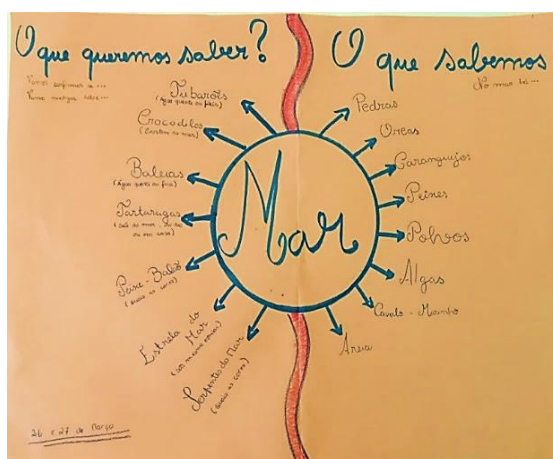 O que queremos saber?
Tubarões
(Água quente ou fria)
Crocodilos
Baleias
(Água quente ou fria)
Tartarugas
Peixe-Balão
(quais as cores)
Estrela do
Mar
Serpentes do Mar
(quais as cores)
26 e 27 de Março
Mar
O que sabemos
No mar há...
Pedras
Orcas
Caranguejos
Peixes
Polvos
Algas
Cavalo-Marinho
Areia